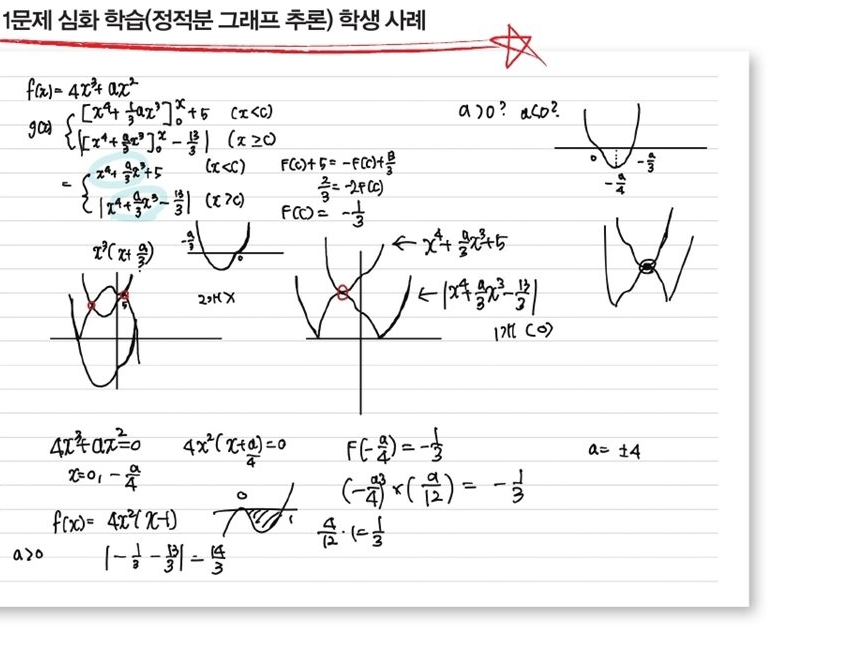 1문제 심화 학습(정적분 그래프 추론) 학생 사례
f(x) = 4x³+ax²
g(x) { [x⁴+⅓ax³]₀ˣ+5 (x<c)
{ |[x⁴+a/3x³]₀ˣ - 13/3| (x≥c)
= { x⁴+a/3x³+5 (x<c)
{ |x⁴+a/3x³-13/3| (x>c)
F(c)+5 = -F(c)+13/3
2/3 = -2F(c)
F(c) = -1/3
a>0? a<0?
0
-a/3
-a/4
x³(x+a/3)
-a/3
0
5
2개 X
← x⁴+a/3x³+5
← |x⁴+a/3x³-13/3|
1개 (0)
4x³+ax²=0
x=0, -a/4
4x²(x+a/4)=0
F(-a/4) = -1/3
a= ±4
(-a³/4)×(a/12) = -1/3
f(x)= 4x²(x-1)
0
1
4/12·1=1/3
a>0
|-1/3-13/3| = 14/3